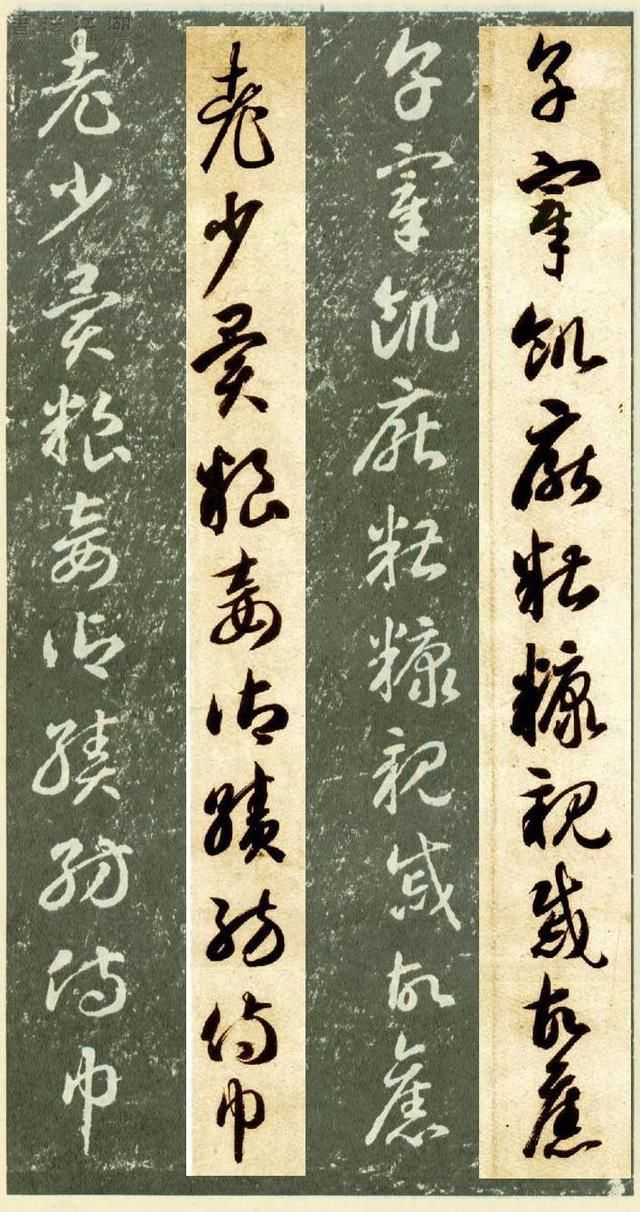 烹宰飢厭糟糠親戚故舊
烹宰飢厭糟糠親戚故舊
老少異糧妾御績紡侍巾
老少異糧妾御績紡侍巾
書法江湖